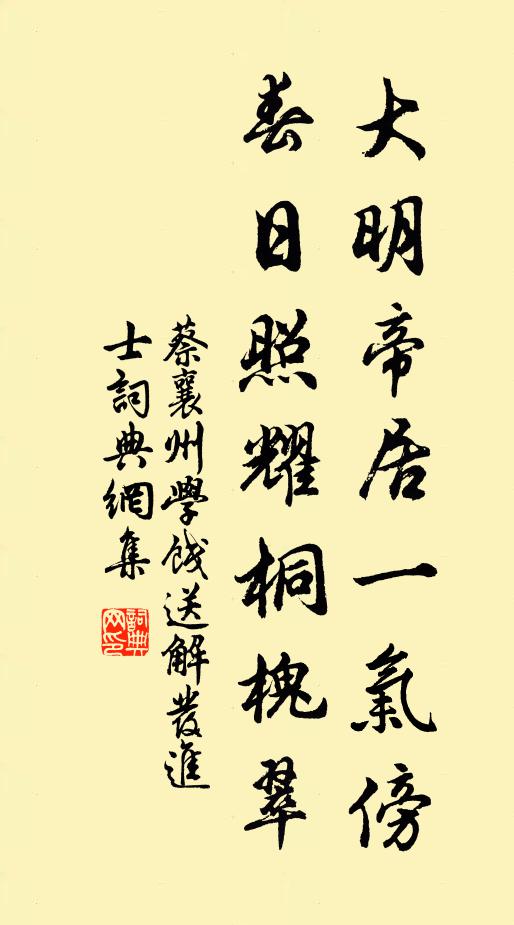 大明帝居一氣傍
春日照耀桐槐翠
蔡襄州學餞送解發進
士詞典網集
詞典
网印